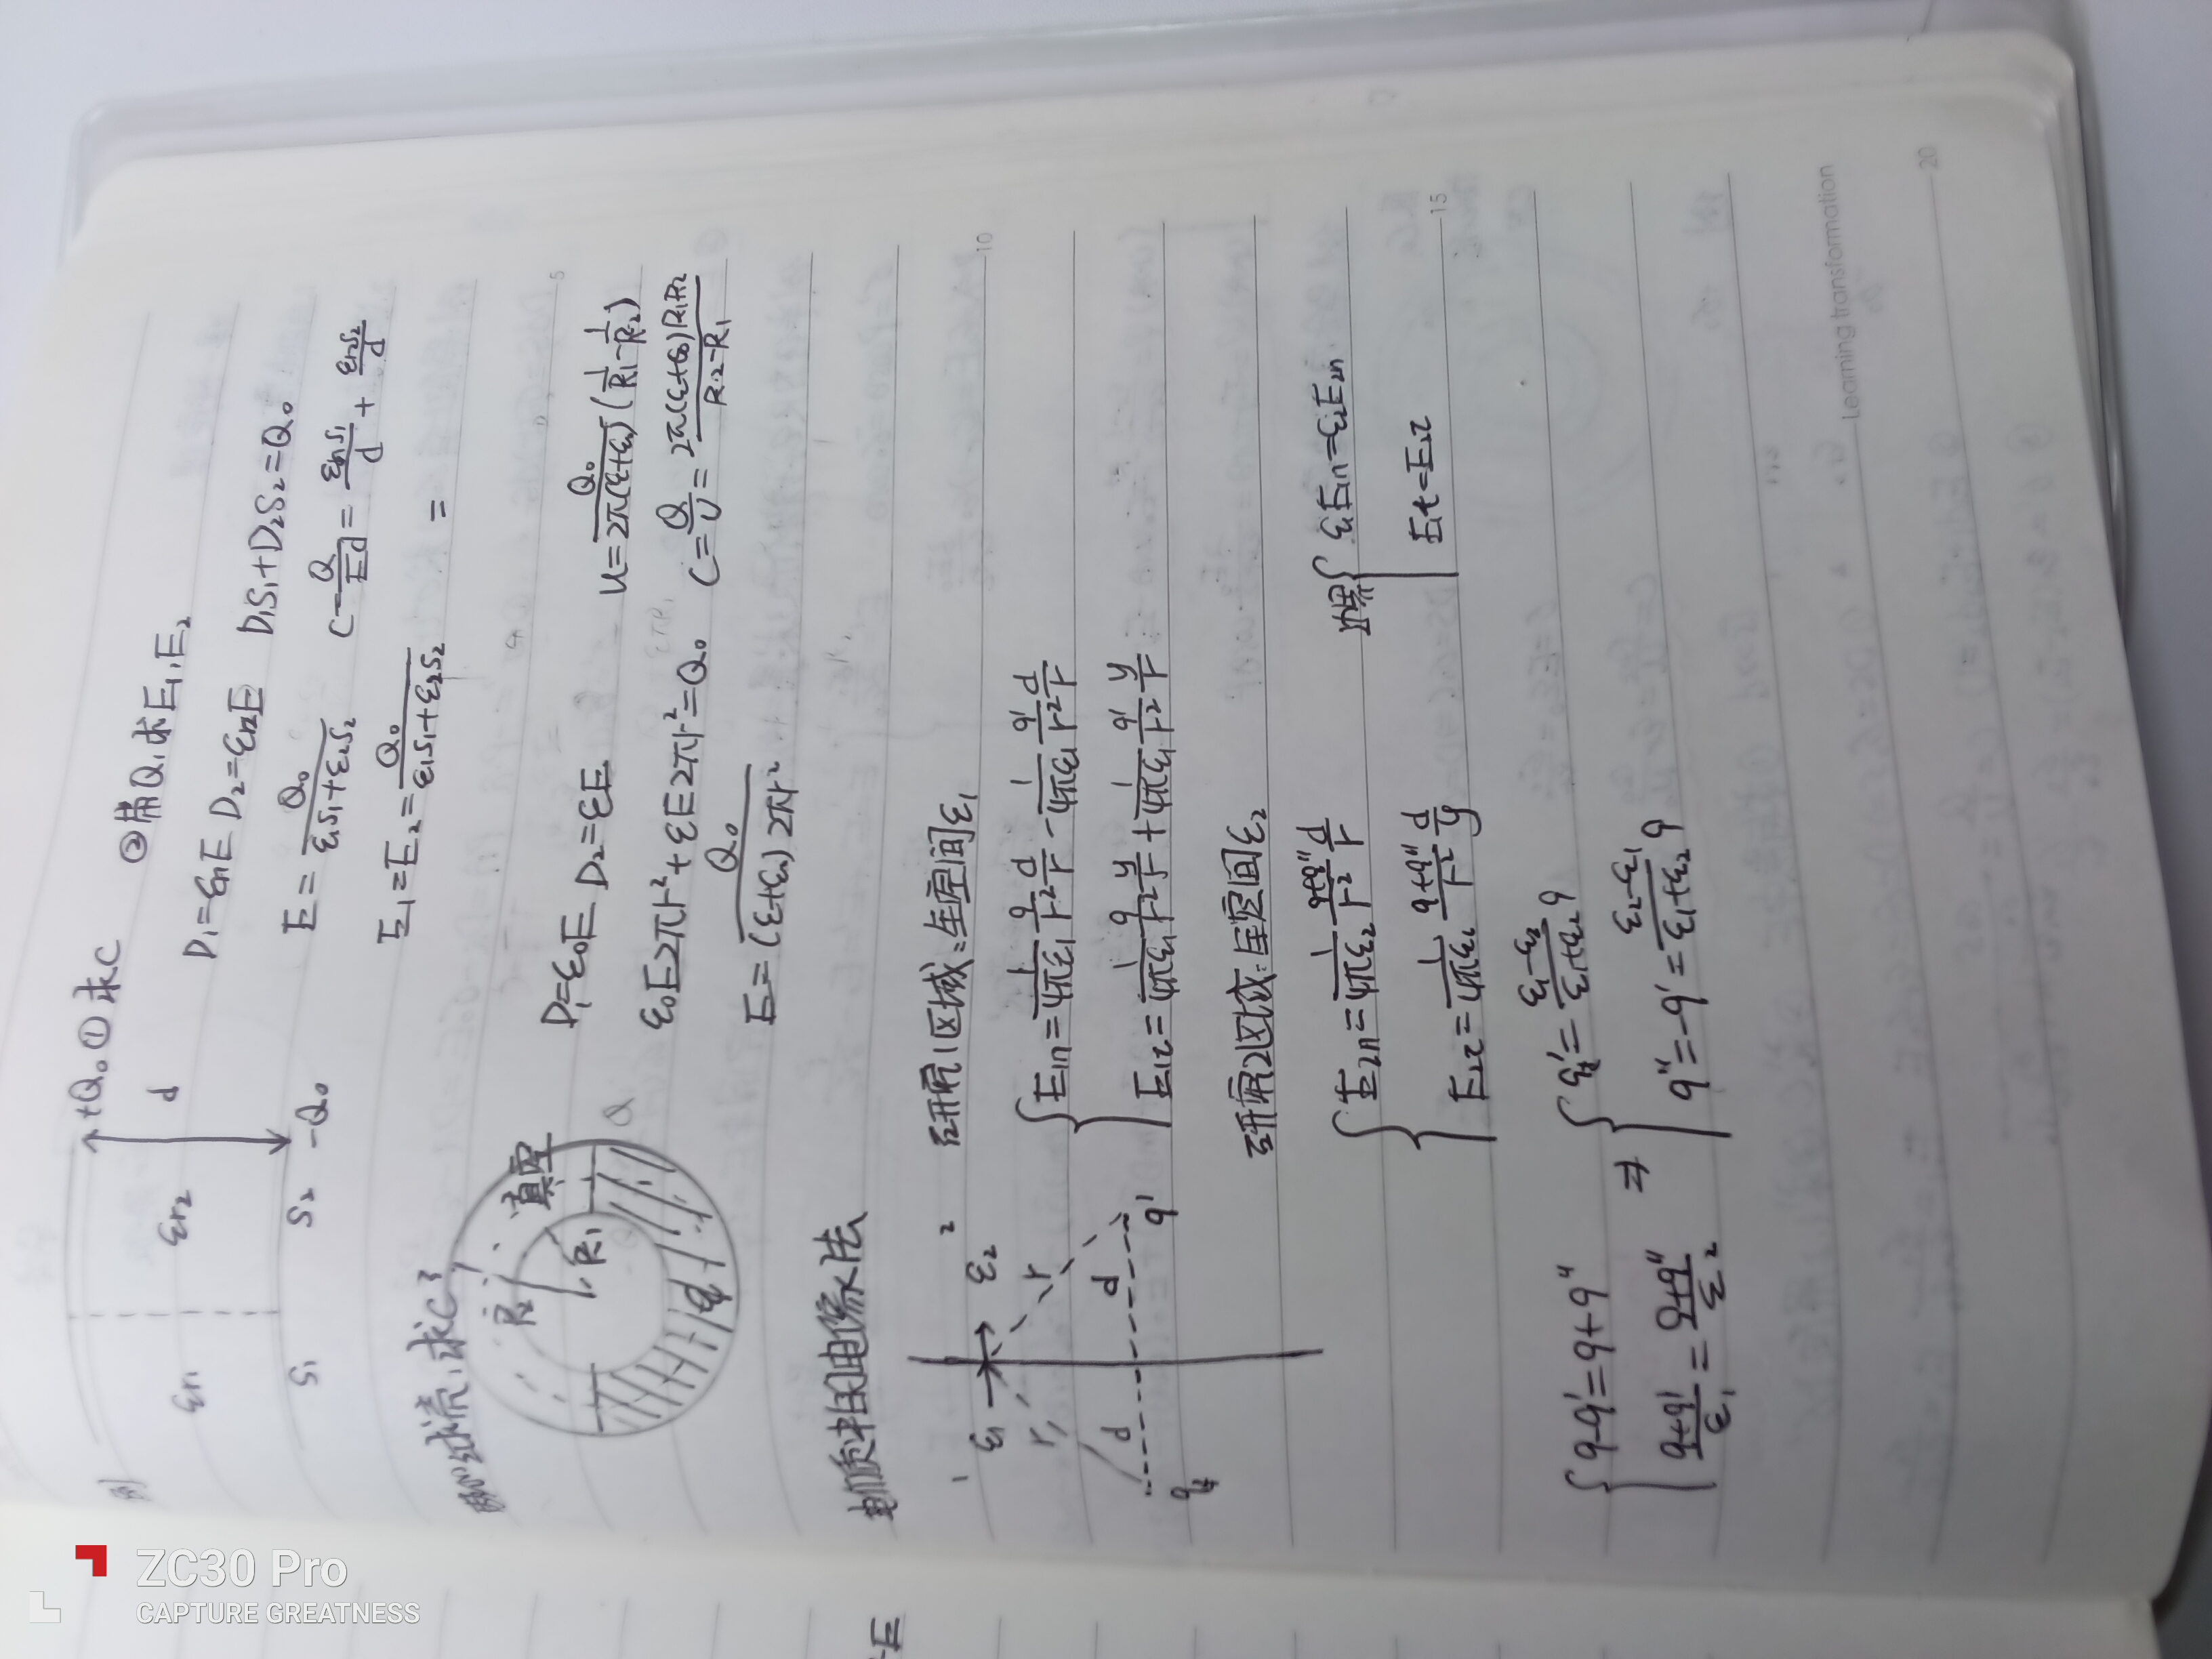 例
+Q₀ ①求C ②带Q₁求E₁,E₂
εr₁ εr₂ d
S₁ S₂ -Q₀
D₁=εr₁E D₂=εr₂E D₁S₁+D₂S₂=Q₀
E=Q₀/(ε₁S₁+ε₂S₂) C=Q/(Ed)=εr₁S₁/d+εr₂S₂/d
E₁=E₂=Q₀/(ε₁S₁+ε₂S₂) =
球壳,求C
R₂ R₁ 真空
D₁=ε₀E D₂=εE
ε₀E2πr²+εE2πr²=Q₀
E=Q₀/((ε+ε₀)2πr²)
U=Q₀/(2π(ε+ε₀))(1/R₁-1/R₂)
C=Q/U=2π(ε+ε₀)R₁R₂/(R₂-R₁)
电介质中的电像法
1 2
ε₁ ε₂
r r
d d
q q'
研究1区域:全空间ε₁
E₁n=1/(4πε₁) q/r² d/r - 1/(4πε₁) q'/r² d/r
E₁τ=1/(4πε₁) q/r² y/r + 1/(4πε₁) q'/r² y/r
研究2区域:全空间ε₂
E₂n=1/(4πε₂) (q+q'')/r² d/r
E₂τ=1/(4πε₂) (q+q'')/r² d/y
边界 ε₁E₁n=ε₂E₂n
E₁t=E₂τ
q-q'=q+q''
(q+q')/ε₁=(q+q'')/ε₂
⇒ q'=(ε₁-ε₂)/(ε₁+ε₂)q
q''=-q'=(ε₂-ε₁)/(ε₁+ε₂)q
5
10
15
20
Learning transformation
ZC30 Pro
CAPTURE GREATNESS